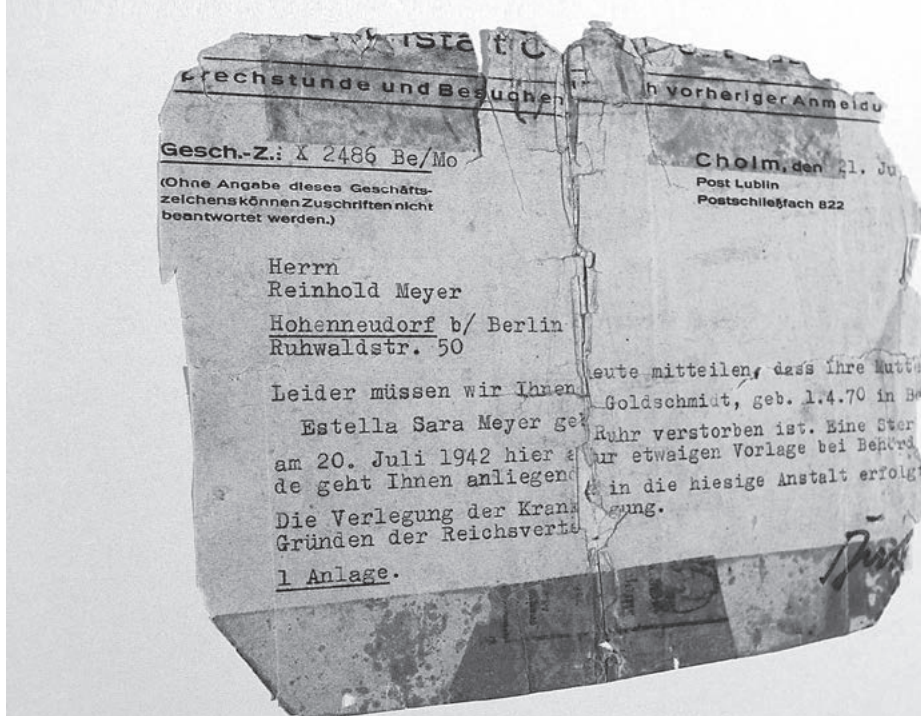 rechstunde und Besuche h vorheriger Anmeldu
Gesch.-Z.: X 2486 Be/Mo
Cholm, den 21. Ju
(Ohne Angabe dieses Geschäfts-
zeichens können Zuschriften nicht
beantwortet werden.)
Post Lublin
Postschließfach 822
Herrn
Reinhold Meyer
Hohenneudorf b/ Berlin
Ruhwaldstr. 50
Leider müssen wir Ihnen eute mitteilen, dass Ihre Mutte
Estella Sara Meyer ge Goldschmidt, geb. 1.4.70 in Be
am 20. Juli 1942 hier a Ruhr verstorben ist. Eine Ster
de geht Ihnen anliegend ur etwaigen Vorlage bei Behörd
Die Verlegung der Kran in die hiesige Anstalt erfolgt
Gründen der Reichsverte gung.
1 Anlage.